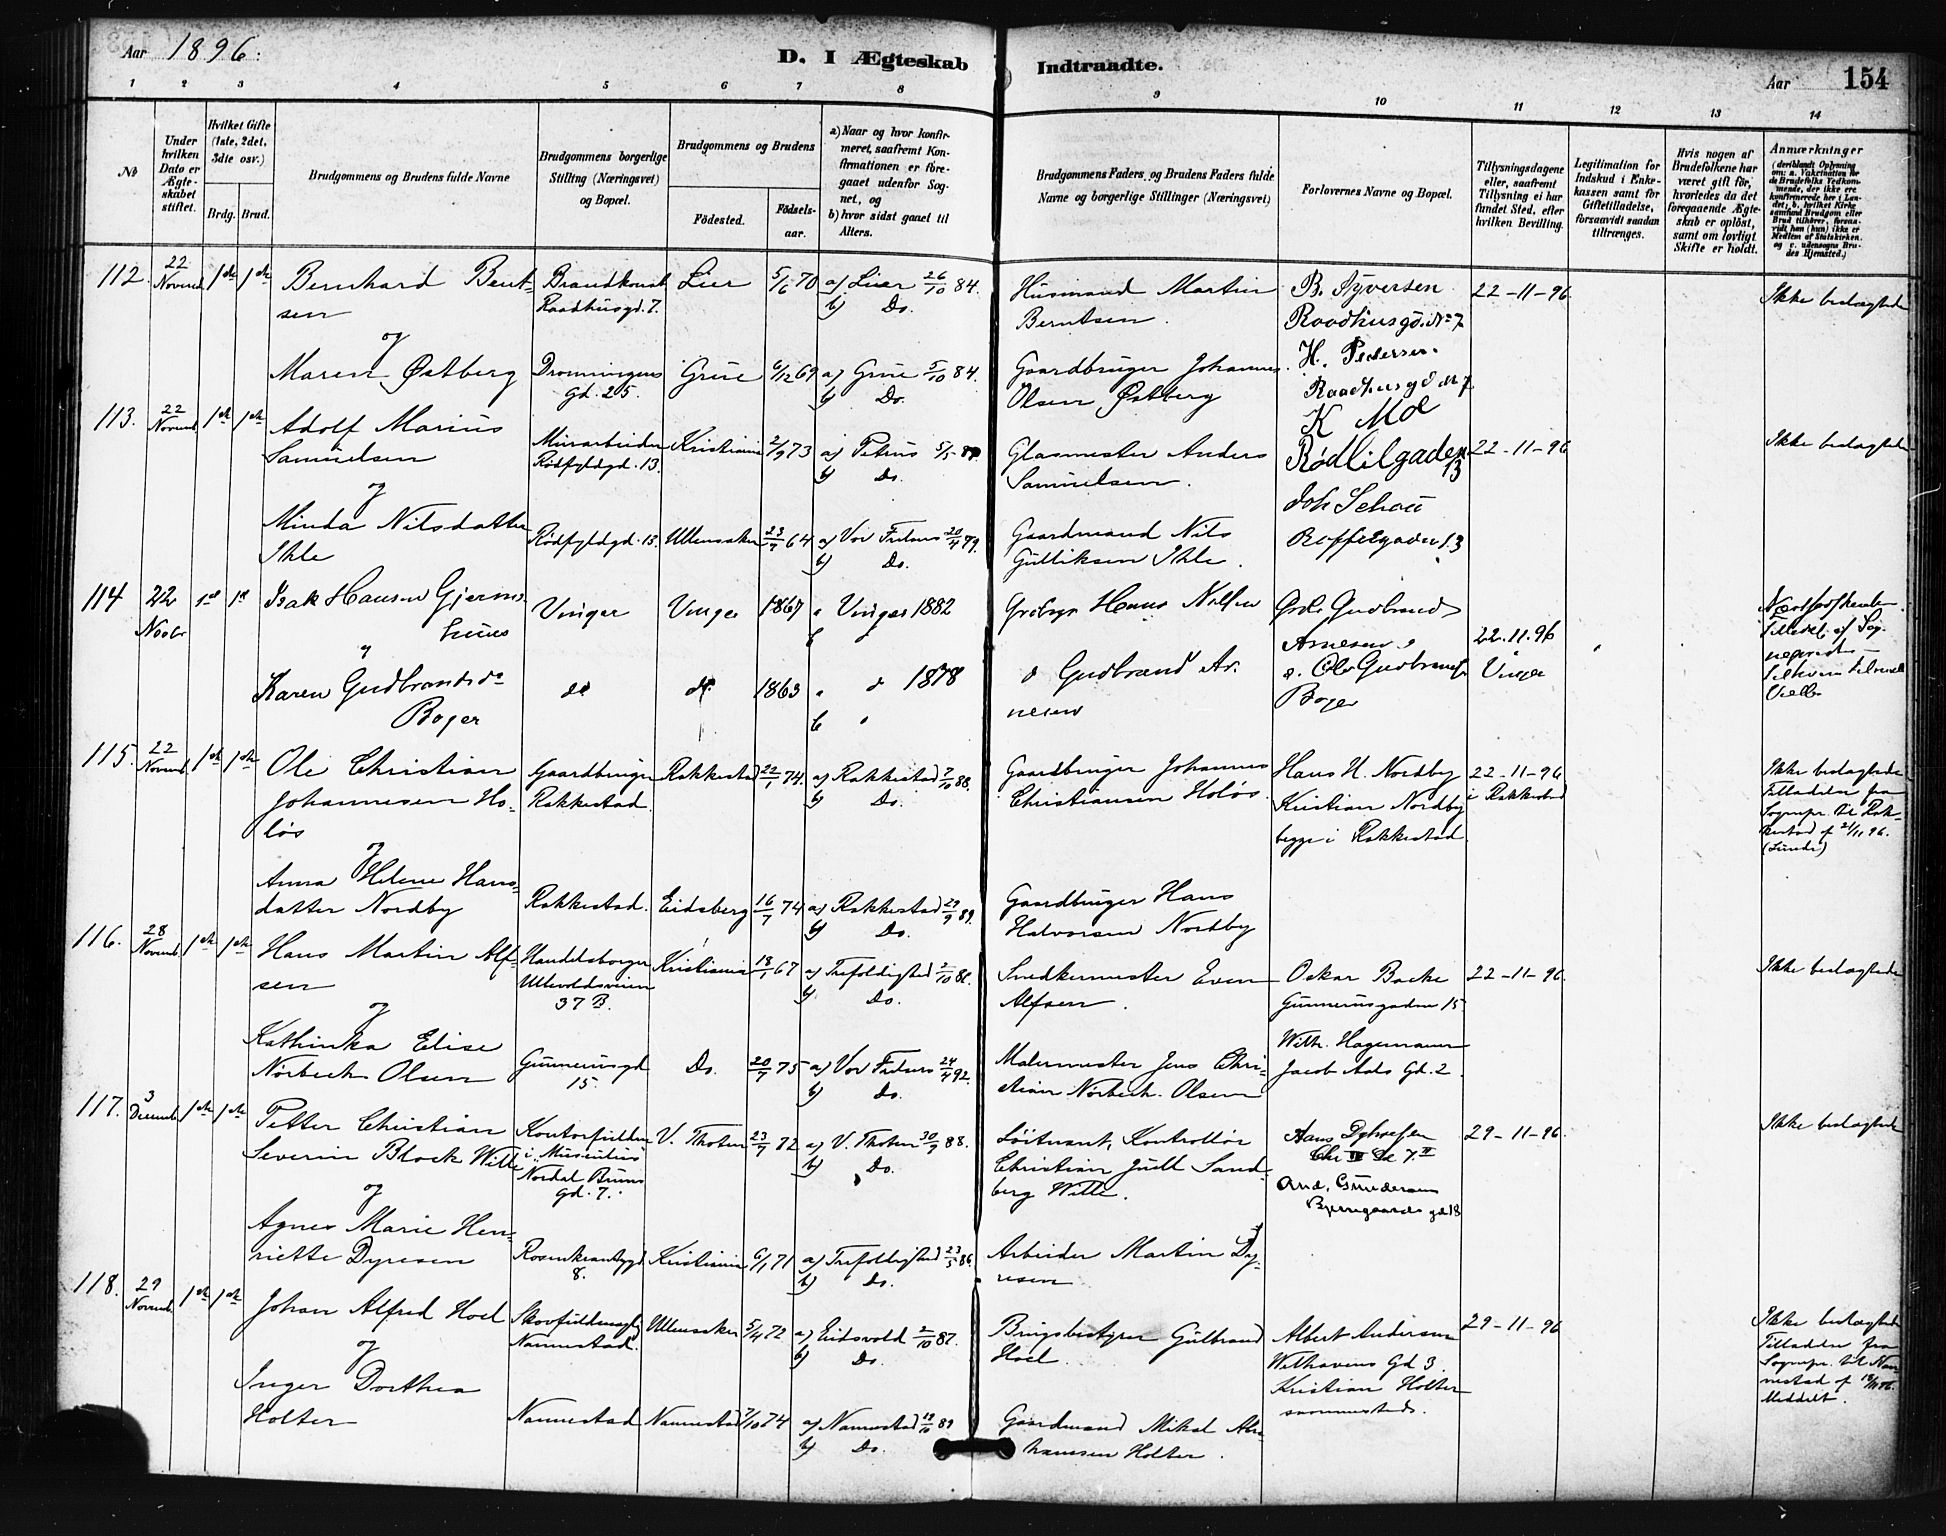 Aar 1896.
D. I Ægteskab Indtraadte.
Aar 154
1 2 3 4 5 6 7 8 9 10 11 12 13 14
No
Under hvilken Dato er Ægteskabet stiftet.
Hvilket Gifte (1ste, 2det, 3die osv.)
Brdg. Brud.
Brudgommens og Brudens fulde Navne
Brudgommens borgerlige Stilling (Næringsvei) og Bopæl.
Brudgommens og Brudens
Fødested.
Fødselsaar.
a) Naar og hvor konfirmeret, saafremt Konfirmationen er foregaaet udenfor Sognet, og
b) hvor sidst gaaet til Alters.
Brudgommens Faders og Brudens Faders fulde Navne og borgerlige Stillinger (Næringsvei)
Forlovernes Navne og Bopæl.
Tillysningsdagene eller, saafremt Tillysning ei har fundet Sted, efter hvilken Bevilling.
Legitimation for Indskud i Enkekassen samt for Giftetilladelse, forsaavidt saadan tiltrænges.
Hvis nogen af Brudefolkene har været gift før, hvorledes da det foregaaende Ægteskab er opløst, samt om lovligt Skifte er holdt.
Anmærkninger
112. 22 Novemb. 1ste 1ste Bernhard Bent-
sen
Brandkonst. Raadhusgd. 7. Lier 5/6 70 a) Lier 26/10 84.
b) Do.
Husmand Martin
Berntsen.
B. Syversen
Raadhusgd. No 7
22-11-96 Ikke beslægtede
og
Maren Østberg Dronningens
Gd. 25. Grue 6/12 69 a) Grue 5/10 84.
b) Do.
Gaardbruger Johannes
Olsen Østberg
H. Pedersen.
Raadhusgd No 7
113. 22 Novemb. 1ste 1ste Adolf Marius
Samuelsen
Murarbeider
Rødfyldgd. 13. Kristiania 2/9 73 a) Petrus 5/5
b) Do.
Glasmester Anders
Samuelsen.
K Moe
Rødfilgaden 13
22-11-96 Ikke beslægtede
og
Minda Nilsdatter
Ihle
Rødfyldgd. 13. Ullensaker 23/7 64 a) Vor Frelsers 20/4 79.
b) Do.
Gaardmand Nils
Gulliksen Ihle.
Joh Schou
13
114 22 Novbr 1st 1st Isak Hansen
Vinger Vinger 1867 a Vinger 1882
b
Hans Nilsen
Gudbrand
Arnesen
22.11.96
Vinger
Karen Gudbrandsdr
Boger
do do 1863 a d 1878
b
d Gudbrand Ar-
nesen
d. Ole Gudbrands.
Boger
115. 22 Novemb. 1ste 1ste Ole Christian
Johannesen Ho-
løs
Gaardbruger
Rakkestad. Rakkestad 22/1 74. a) Rakkestad 7/10 88.
b) Do.
Gaardbruger Johannes
Christiansen Holøs.
Hans H. Nordby
Kristian Nordby
begge i Rakkestad
22-11-96
i Rakkestad
Ikke beslægtede
Tilladelse fra
Sognepr. til Rak-
kestad af 21/11 96.
(Lunde)
og
Anna Helene Hans-
datter Nordby
Rakkestad. Eidsberg 16/7 74 a) Rakkestad 29/9 89.
b) Do.
Gaardbruger Hans
Halvorsen Nordby
116. 28 Novemb. 1ste 1ste Hans Martin Alf-
sen
Handelsborger
Ullevoldsveien
37 B. Kristiania 18/1 67 a) Trefoldighed 2/10 81.
b) Do.
Snedkermester Even
Alfsen.
Oskar Backe
Gunnerusgaden 15.
22-11-96. Ikke beslægtede
og
Kathinka Elise
Nørbech Olsen
Gunnerusgd
15. Do. 20/7 75 a) Vor Frelsers 24/4 92.
b) Do.
Malermester Jens Chri-
stian Nørbech Olsen
Wilh. Hagemann
Jacob Aals Gd. 2.
117. 3 Decemb. 1ste 1ste Petter Christian
Severin Block Witte
Kontorfuldm.
Nordal Bruns
Gd. 7. V. Thoten 23/7 72 a) V. Thoten 30/9 88.
b) Do.
Løitnant, Kontrollør
Christian Juell Sand-
berg Witte.
Hans
And. Gundersen
Bjerregaards gd 18
29-11-96. Ikke beslægtede
og
Agnes Marie Hen-
riette Dyresen
Rosenkrantzgd
8. Kristiania 6/1 71 a) Trefoldighed 23/5 86.
b) Do.
Arbeider Martin Dy-
resen
118. 29 Novemb. 1ste 1ste Johan Alfred Hoel
Skovfuldmægtig
Nannestad. Ullensaker 5/4 72 a) Eidsvold 2/10 87.
b) Do.
Brugsbestyrer Gulbrand
Hoel.
Albert Andersen
Welhavens Gd 3.
29-11-96 Ikke beslægtede
Tilladelse fra
Sognepr. til Nan-
nestad af
Meddelt.
og
Inger Dorthea
Holter
Nannestad Nannestad 7/10 74 a) Nannestad 19/10 89
b) Do.
Gaardmand Mikal Abra-
hamsen Holter.
Kristian Holter
sammesteds.